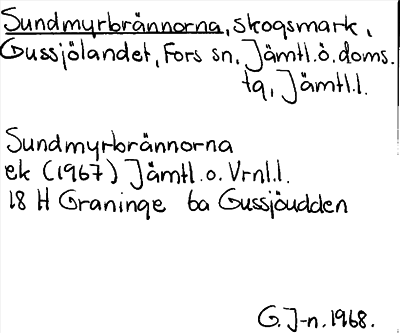 Sundmyrbrännorna, skogsmark,
Gussjölandet, Fors sn, Jämtl.ö.doms.
tg, Jämtl.l.
Sundmyrbrännorna
ek (1967) Jämtl.o.Vrnl.l.
18 H Graninge 6a Gussjöudden
G.J-n.1968.